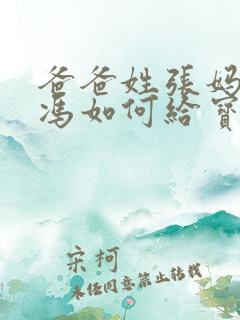 爸爸姓張媽
馮如何給寶
宋柯
未经同意禁止转载